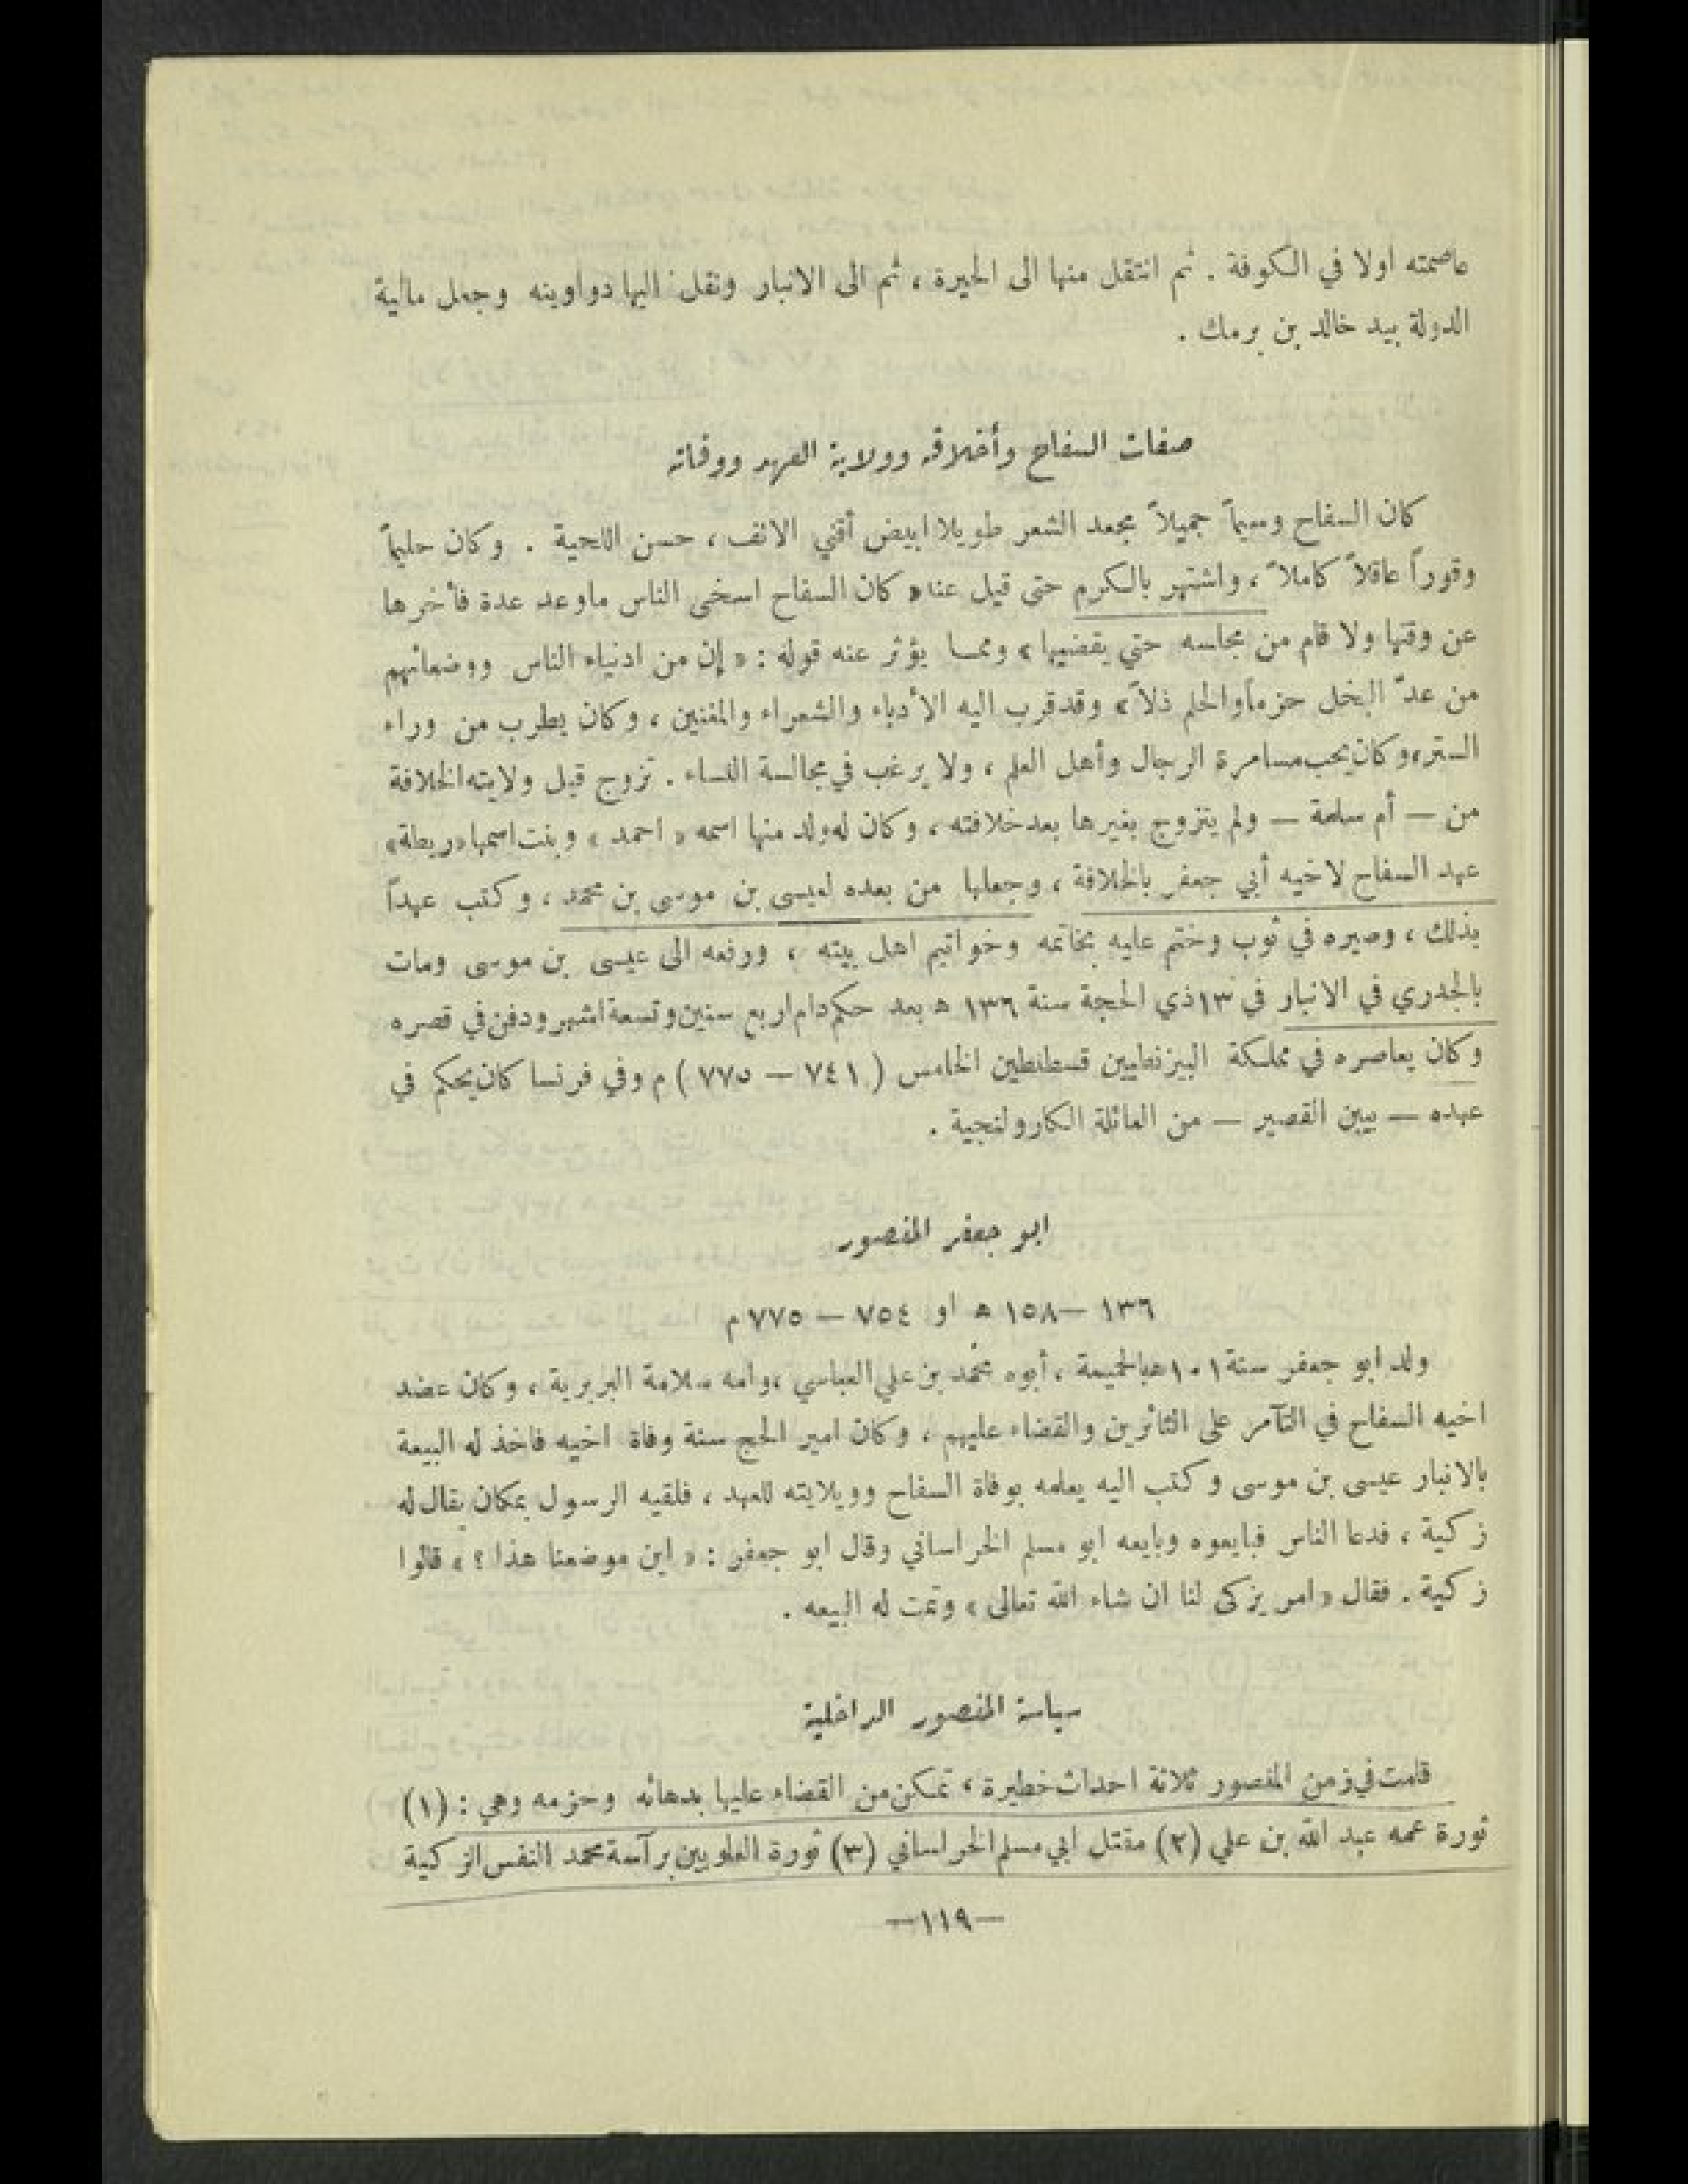 عاصمته اولا في الكوفة . ثم انتقل منها الى الحيرة ، ثم الى الانبار ونقل اليها دواوينه وجعل مالية
الدولة بيد خالد بن برمك .
صفات السفاح وأخلاقه وولاية العهد ووفاته
كان السفاح وسيماً جميلاً مجعد الشعر طويلا ابيض أقني الانف ، حسن اللحية . وكان حليماً
وقوراً عاقلاً كاملاً ، واشتهر بالكرم حتى قيل عنه « كان السفاح اسخى الناس ماوعد عدة فأخرها
عن وقتها ولا قام من مجلسه حتي يقضيها » ومما يؤثر عنه قوله : « إن من ادنياء الناس ووضعائهم
من عدّ البخل حزماً والحلم ذلاً » وقد قرب اليه الأدباء والشعراء والمغنين ، وكان يطرب من وراء
الستر، وكان يحب مسامرة الرجال وأهل العلم ، ولا يرغب في مجالسة النساء . تزوج قبل ولايته الخلافة
من — أم سلمة — ولم يتزوج بغيرها بعد خلافته ، وكان له ولد منها اسمه « احمد » وبنت اسمها «ريطة»
عهد السفاح لاخيه أبي جعفر بالخلافة ، وجعلها من بعده لعيسى بن موسى بن محمد ، وكتب عهداً
بذلك ، وصيره في ثوب وختم عليه بخاتمه وخواتيم اهل بيته ، ورفعه الى عيسى بن موسى ومات
بالجدري في الانبار في ١٣ ذي الحجة سنة ١٣٦ ه بعد حكم دام اربع سنين وتسعة اشهر ودفن في قصره
وكان يعاصره في مملكة البيزنطيين قسطنطين الخامس ( ٧٤١ — ٧٧٥ ) م وفي فرنسا كان يحكم في
عهده — بيبن القصير — من العائلة الكارولنجية .
ابو جعفر المنصور
١٣٦ — ١٥٨ ه او ٧٥٤ — ٧٧٥ م
ولد ابو جعفر سنة ١٠١ ه بالحميمة ، أبوه محمد بن علي العباسي ، وامه سلامة البربرية ، وكان عضد
اخيه السفاح في التآمر على الثائرين والقضاء عليهم ، وكان امير الحج سنة وفاة اخيه فاخذ له البيعة
بالانبار عيسى بن موسى وكتب اليه يعلمه بوفاة السفاح وويلايته للعهد ، فلقيه الرسول بمكان يقال له
زكية ، فدعا الناس فبايعوه وبايعه ابو مسلم الخراساني وقال ابو جعفر : « اين موضعنا هذا ؟ » قالوا
زكية . فقال « امر يزكي لنا ان شاء الله تعالى » وتمت له البيعه .
سياسة المنصور الداخلية
قامت في زمن المنصور ثلاثة احداث خطيرة ، تمكن من القضاء عليها بدهائه وحزمه وهي : (١)
ثورة عمه عبد الله بن علي (٢) مقتل ابي مسلم الخراساني (٣) ثورة العلويين برآسة محمد النفس الزكية
—١١٩—